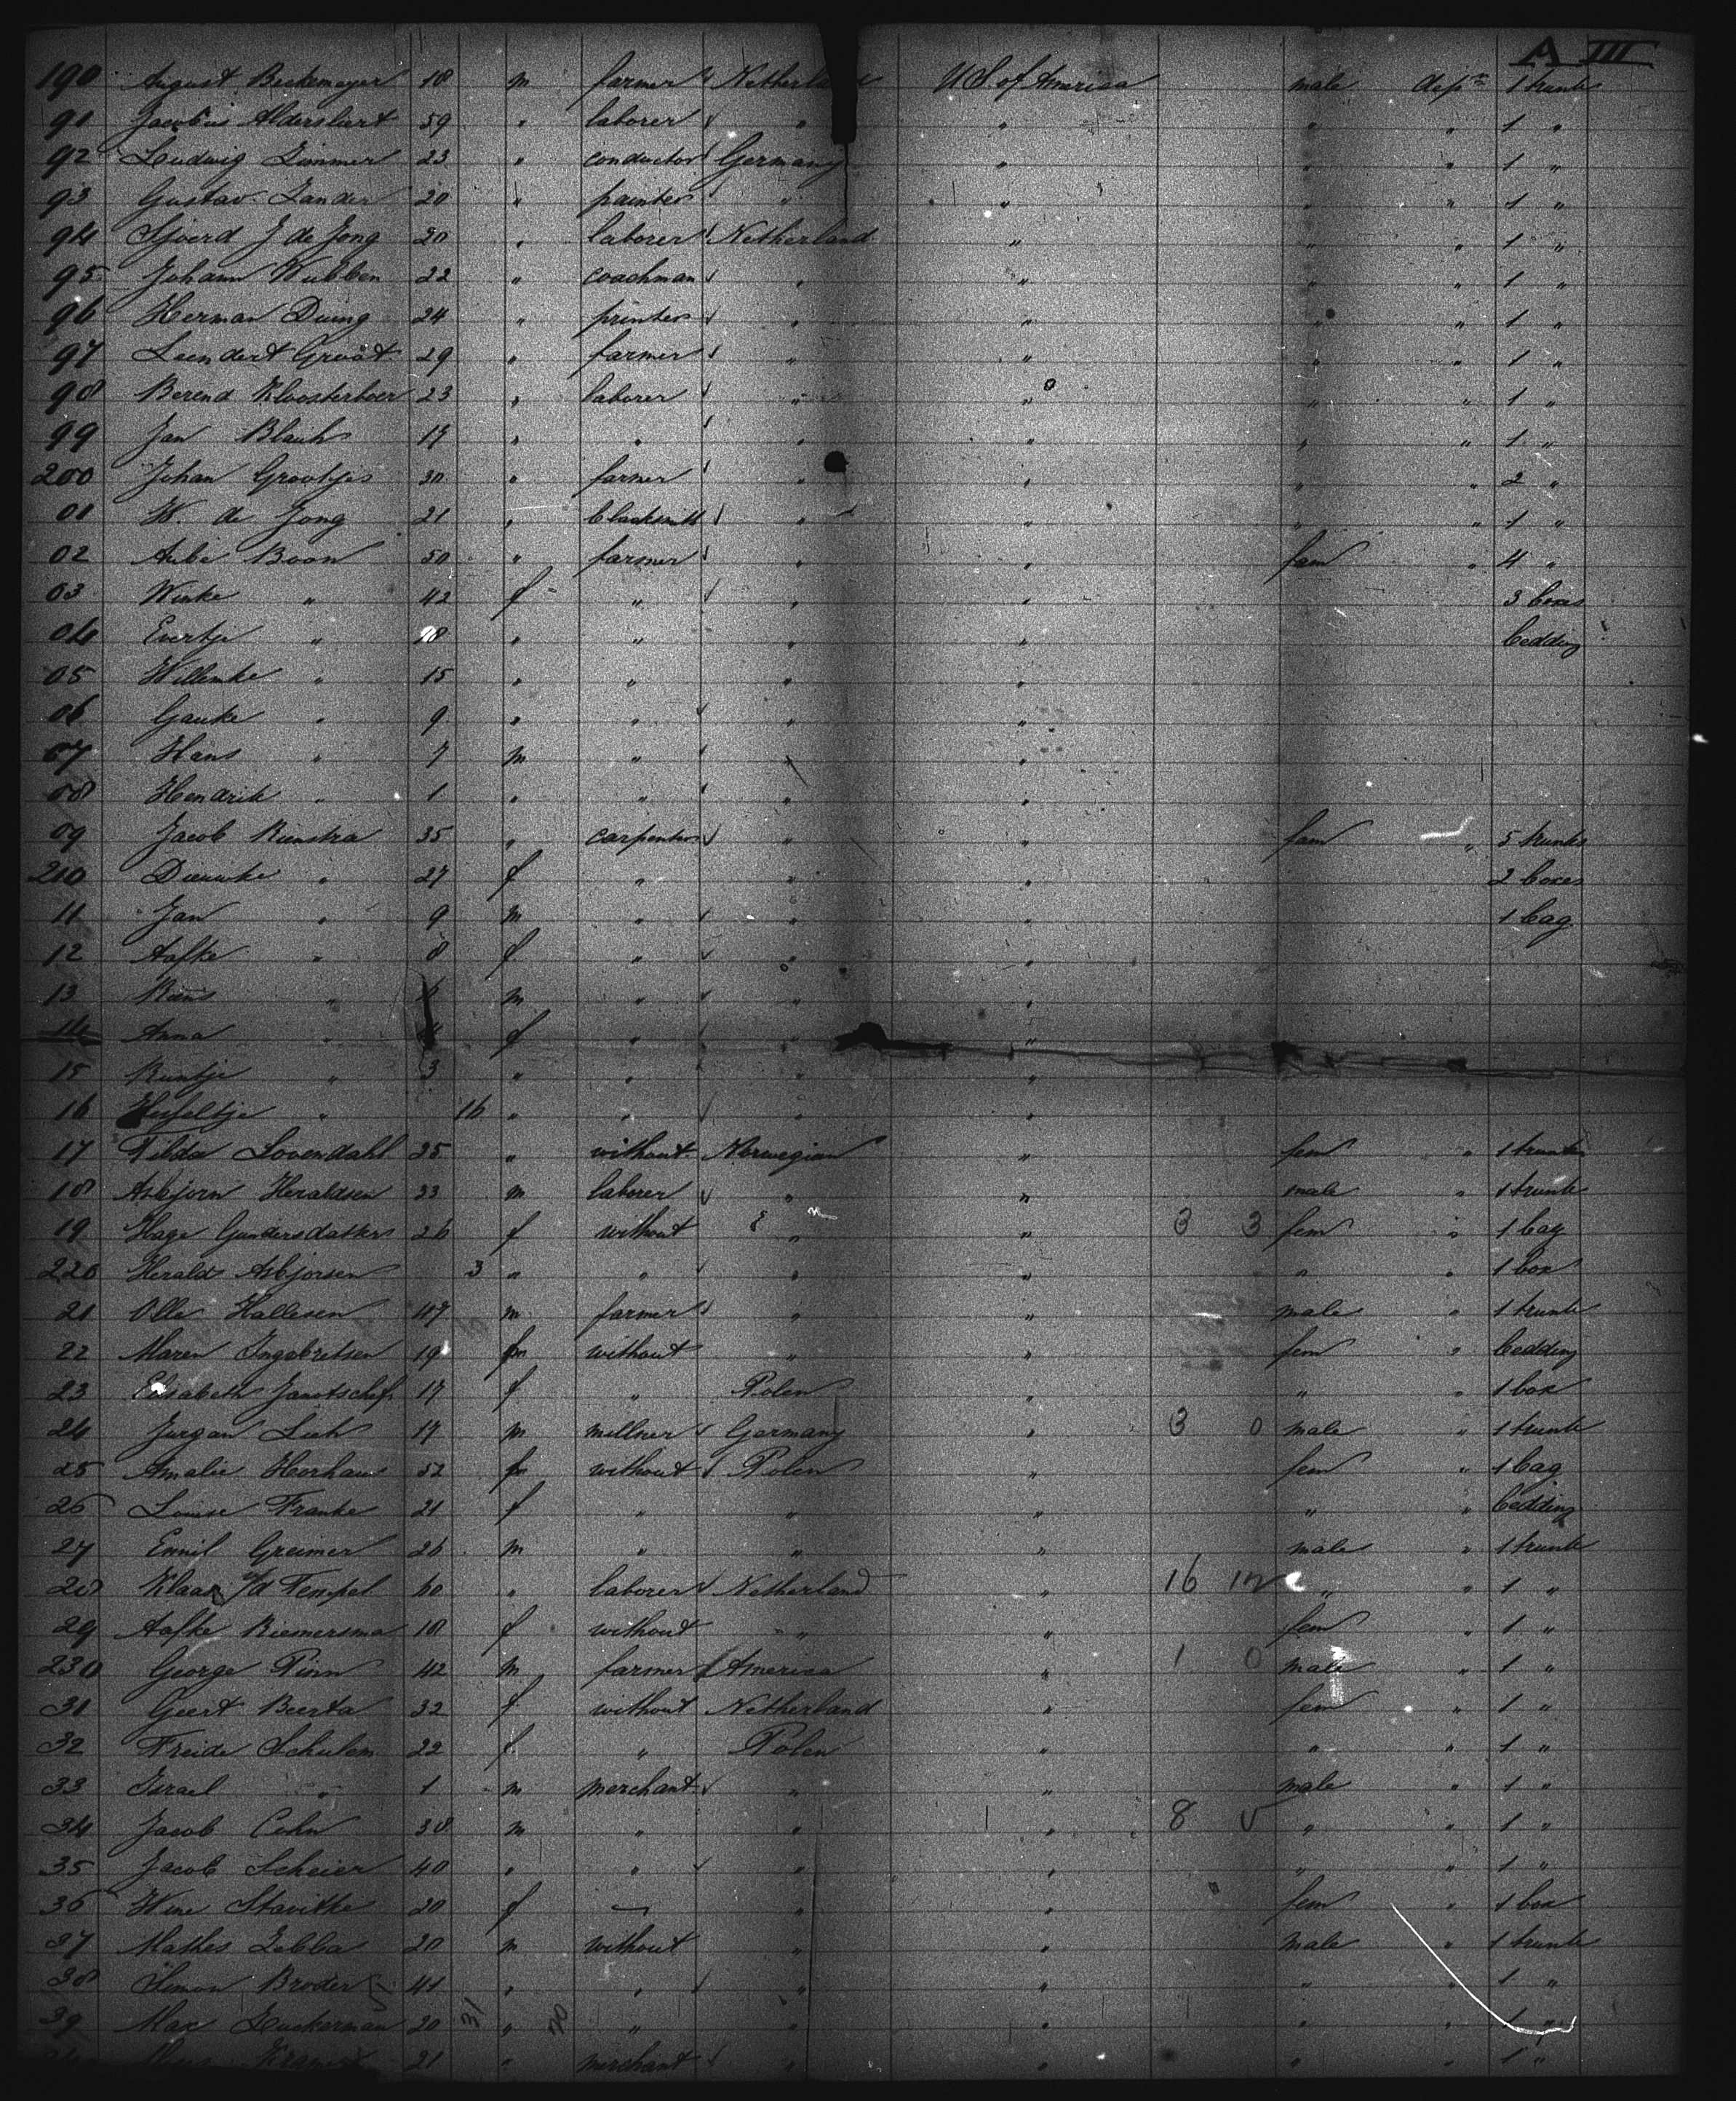 A III
190 August Beckemeyer 18 m farmer Netherland U S. of America male dept 1 trunk
91 Jacobus Aldersliert 59 " laborer " " " " 1 "
92 Loudwig Zimmer 23 " conductor Germany " " " 1 "
93 Gustav Zander 20 " painter " " " " 1 "
94 Sjoerd J de Jong 20 " laborer Netherland " " " 1 "
95 Johann Wubben 22 " coachman " " " " 1 "
96 Herman Duing 24 " printer " " " " 1 "
97 Leendert Groot 29 " farmer " " " " 1 "
98 Berend Kloosterboer 23 " laborer " " " " 1 "
99 Jan 17 " " " " " " 1 "
200 Johan Grootjes 30 " farmer " " " " 2 "
01 W. de Jong 21 " blacksmith " " " " 1 "
02 Boon 50 " farmer " " fam " 4 "
03 Winke " 42 f " " " 3 boxes
04 Evertje " 18 " " " " bedding
05 Willemke " 15 " " " "
06 Gauke " 9 " " " "
07 Hans " 7 m " " "
08 Hendrik " 1 " " " "
09 Jacob Rienstra 35 " carpenter " " fam " 5 trunks
210 Dieuwke " 27 f " " " 2 boxes
11 Jan " 9 m " " " 1 bag
12 Aafke " 8 f " " "
13 Riens " m " " "
14 Anna " 4 f " " "
15 " 3 " " " "
16 Hesseltje " 16 " " " "
17 Tilda Lovendahl 25 " without Norwegian " fem " 1 trunk
18 Asbjorn Heraldsen 33 m laborer " " male " 1 trunk
19 Hage Gundersdatter 26 f without " " 3 3 fem " 1 bag
220 Herald Asbjorsen 3 " " " " " " 1 box
21 Olle Hallesen 47 m farmer " " male " 1 trunk
22 Maren Ingebretsen 19 without " " fem " bedding
23 Elisabeth 17 f " Polen " " " 1 box
24 Jurgan 17 m millner Germany " 3 0 male " 1 trunk
25 Amalie Horhaus 52 without Polen " fem " 1 bag
26 Louise Franke 21 f " " " " " bedding
27 Emil Greimer 26 m " " " male " 1 trunk
28 Klaas v/d Tempel 60 " laborer Netherland " 16 " " 1 "
29 Aafke Riemersma 18 f without " " fem " 1 "
230 George Pinn 42 m farmer America " 1 0 male " 1 "
31 Geert Beerta 32 f without Netherland " fem " 1 "
32 Freide Schulem 22 f " Polen " " " 1 "
33 Israel " 1 m merchant " " male " 1 "
34 Jacob Cohn 38 m " " " 8 " " 1 "
35 Jacob Scheier 40 " " " " " " 1 "
36 Stavitke 20 f — " " fem " 1 box
37 Mathes Zebba 20 m without " " male " 1 trunk
38 Simon Broder 41 " " " " " " 1 "
39 Max Zuckerman 20 31 " " " " " " 1 "
21 " merchant " " " " 1 "